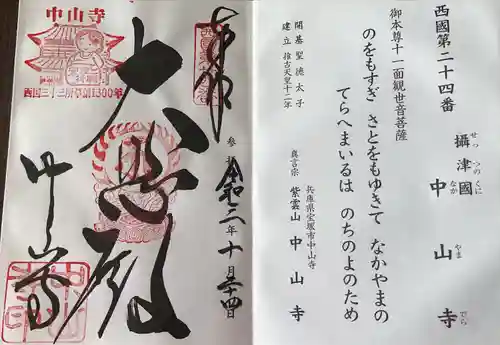 西國第二十四番
攝津國 中山寺
せっつのくに なかやまでら
御本尊十一面観世音菩薩
のをもすぎ さとをもゆきて なかやまの
てらへまいるは のちのよのため
開基 聖徳太子
建立 推古天皇十二年
兵庫県宝塚市中山寺
真言宗 紫雲山 中山寺
奉拝
参拝 令和二年十月二十四日
大悲殿
中山寺
中山寺
西国三十三所草創1300年